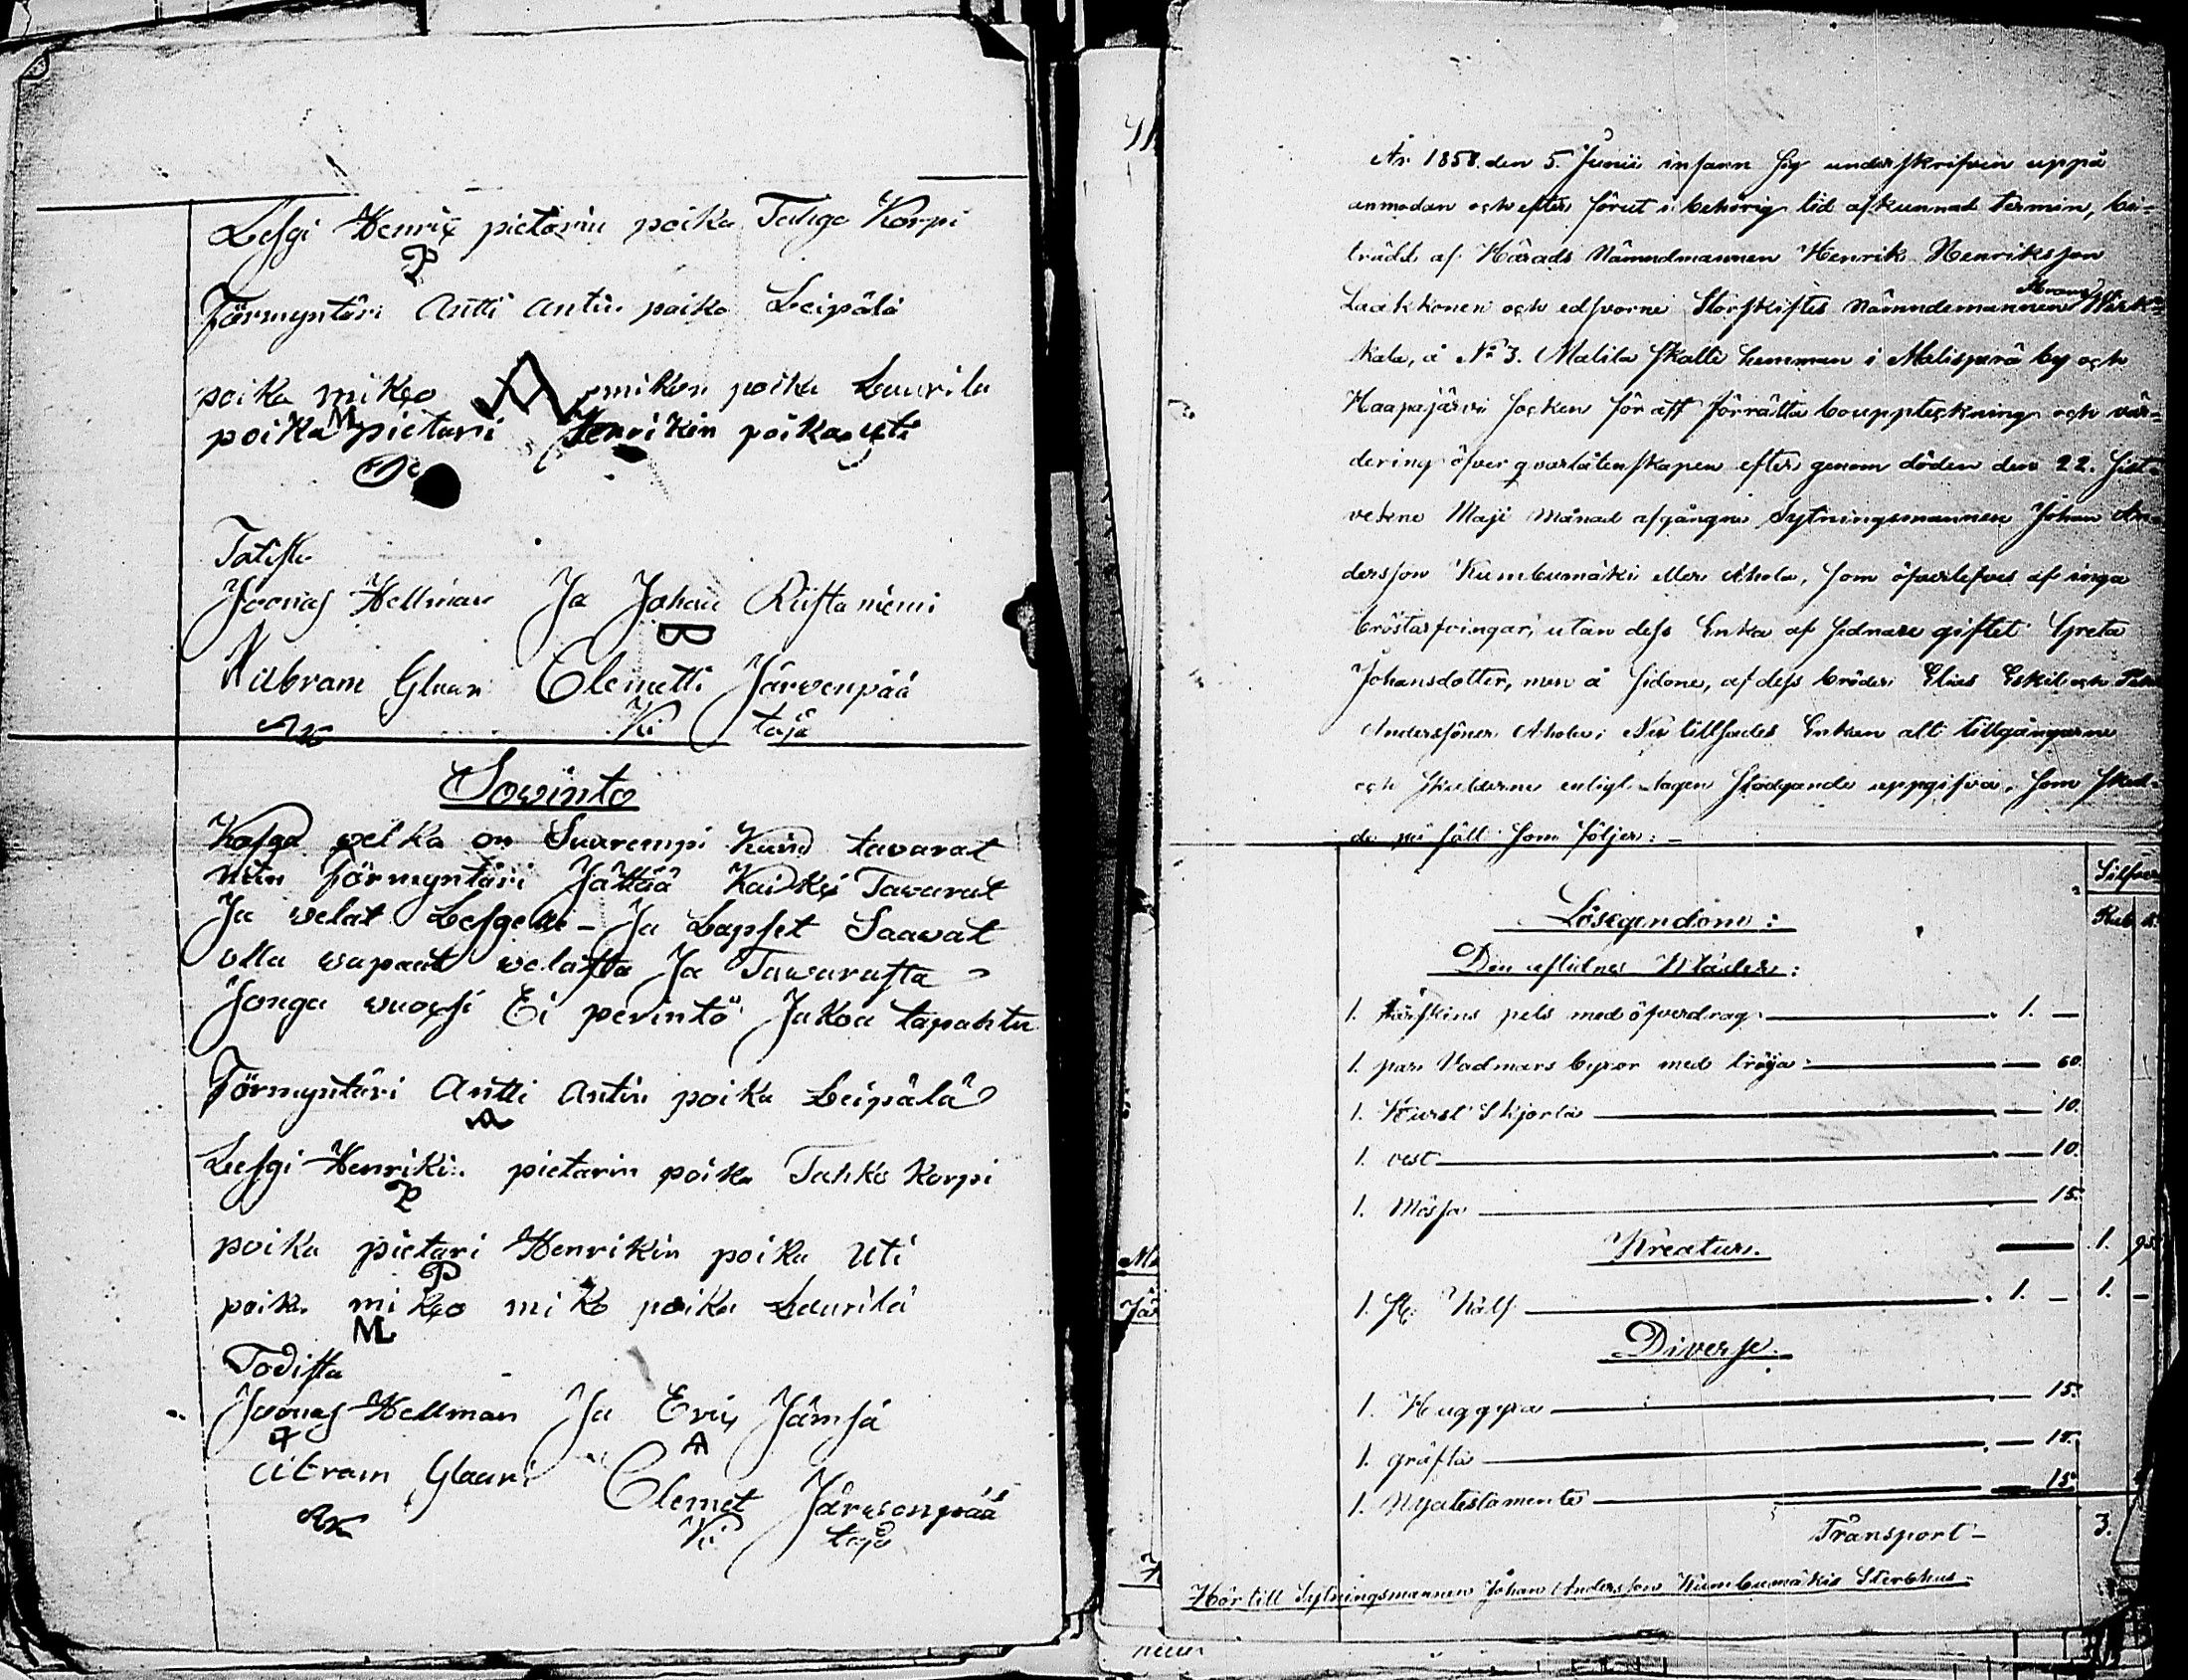 Lesgi Henrix pietarin poika Tahgo Korpi
P
Förmyntäri Antti Antin poika Leipälä
poika mikko miken poika Laurila
M
poika pietari Henrikin poika uti
Tatista
Joonas Hellman Ja Johan Riistaniemi
B
Aabram Glaari Clemetti Järwenpää
AK Ki taja
Sowinto
Kosga welka on Suurempi Kuin tavarat
niin förmyntäri Jättää Kaikki Tawarat
Ja welat Lesgelle – Ja Lapset Saawat
olla wapaat welasta Ja Tawarasta
Jonga wuoxsi Ei perintö Jakoa tapahtu
Förmyntäri Antti Antin poika Leipälä
A
Lesgi Henrikin pietarin poika Tahko Korpi
P
poika pietari Henrikin poika Uti
P
poika mikko mikko poika Laurila
M
Todista
Joonas Hellman Ja Erix Jämsä
A
Abram Glaari Clemet Järwenpää
AK Ki taja
År 1858. den 5. Junii infann sig underskrifven uppå
anmodan och efter förut i behörig tid afkunnad termin, bi-
trädd af Härads Nämndmannen Henrik Henriksson
Laakkonen och edsvorne Storskiftes Nämndemannen Abram Wirk-
kala, å No 3. Malila skatte hemman i Malisperä by och
Haapajärvi Socken för att förrätta bouppteckning och vär-
dering öfver qvarlåtenskapen efter genom döden den 22. sist-
vekne Maji månad afgångne Sytningsmannen Johan An-
dersson Kumbumäki eller Ahola, som öfverlefves af inga
bröstarfvingar, utan dess Enka af sednare giftet Greta
Johansdotter, men å sidone, af dess bröder Elias Eskil och
Anderssöner Ahola; Nu tillsades Enkan allt tillgångarne
och skulderne enligt Lagens stadgande uppgifva, som sked-
de på sätt som följer: –
Silfver
Rub k.
Lösegendom:
Den aflidnes Kläder:
1. Fårskins pels med öfverdrag 1. –
1. par Vadmars byxor med tröja – 60.
1. Hurst Skjorta – 10.
1. vest – 10.
1. Mössa 15.
1. 95.
Kreatur.
1. st. Kalf 1. – 1. –
Diverse.
1. Huggyxa – 15.
1. gräfta – 15.
1. Nyatestamente – 15.
Transport – 3.
Hör till Sytningsmannen Johan Andersson Kumbumäkis Sterbhus.